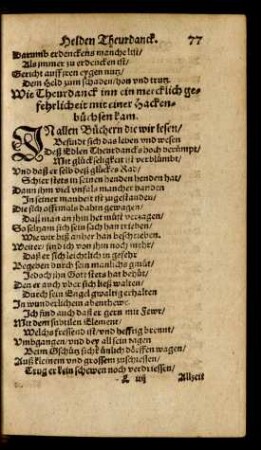 Helden Theurdanck. 77
Darumb erdenckens manche list/
Als jmmer zu erdencken ist/
Gericht auff jren eygen nutz/
Dem Held zum schaden/hon vnd trutz.
Wie Theurdanck inn ein mercklich ge-
fehrlicheit mit einer Hacken-
büchsen kam.
IN allen Büchern die wir lesen/
Befindt sich das leben vnd wesen
Deß Edlen Theurdancks hoch berümpt/
Mit glückseligkeit ist verblümbt/
Vnd daß er selb deß glückes Rad/
Schier stets in seinen handen hat/
Dann jhm viel vnfals mancher handen
In seiner manheit ist zugestanden/
Die sich offtmals dahin gewagen/
Daß man an jhm het müst verzagen/
So seltzam sich sein sach han erhaben/
Wie wir biß anher han beschrieben.
Weiter find ich von jhm noch mehr/
Daß er sich leichtlich in gefehr
Begeben durch sein manlichs gmüt/
Jedoch jhn Gott stets hat behüt/
Den er auch vber sich ließ walten/
Durch sein Engel gwaltig erhalten
In wunderbarlichem abenthewr.
Ich find auch daß er gern mit Fewr/
Mit dem subtilen Element/
Welchs fressend ist/vnd hefftig brennt/
Vmbgangen/vnd bey all sein tagen
Beim Gschütz sich künlich dörffen wagen/
Auß kleinem vnd grossem zuschiessen/
Trug er kein schewen noch verdriessen/
Allzeit